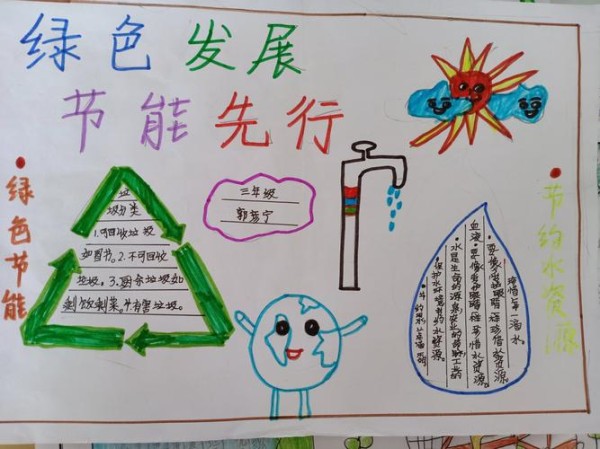 绿色发展
节能先行
绿色节能
垃
圾分类
1.可回收垃圾
如图书。2.不可回收
垃圾。3.厨余垃圾如
剩饭剩菜。4.有害垃圾。
三年级
郭芳宁
节约水资源
珍惜每一滴水
要像爱护眼睛一样珍惜水资源
血液,要像爱护眼睛一样珍惜水资源。
·水是生命的源泉,农业的命脉,工业的
保护水环境,节约水资源。